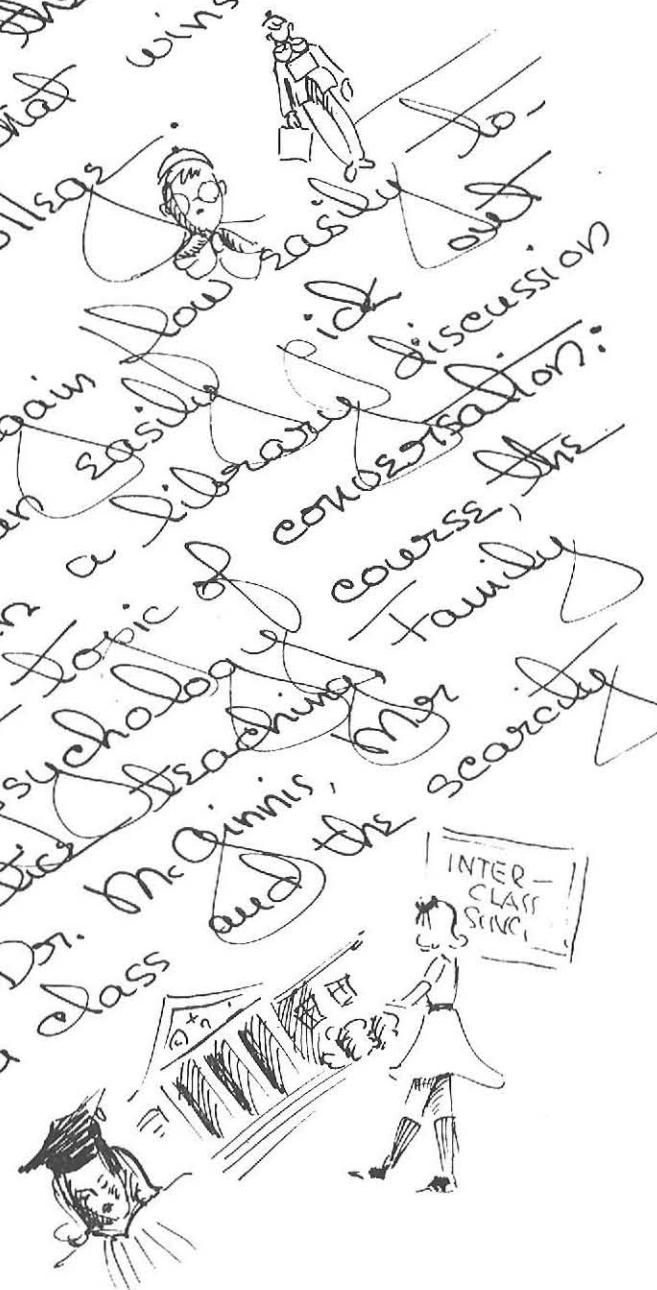 the
that wins
again how easily to-
easily out
a library discussion
topic of conversation:
psychology course, the
teaching, family
Dr. McGinnis, Mr
class and the scarcity
INTER-
CLASS
SING